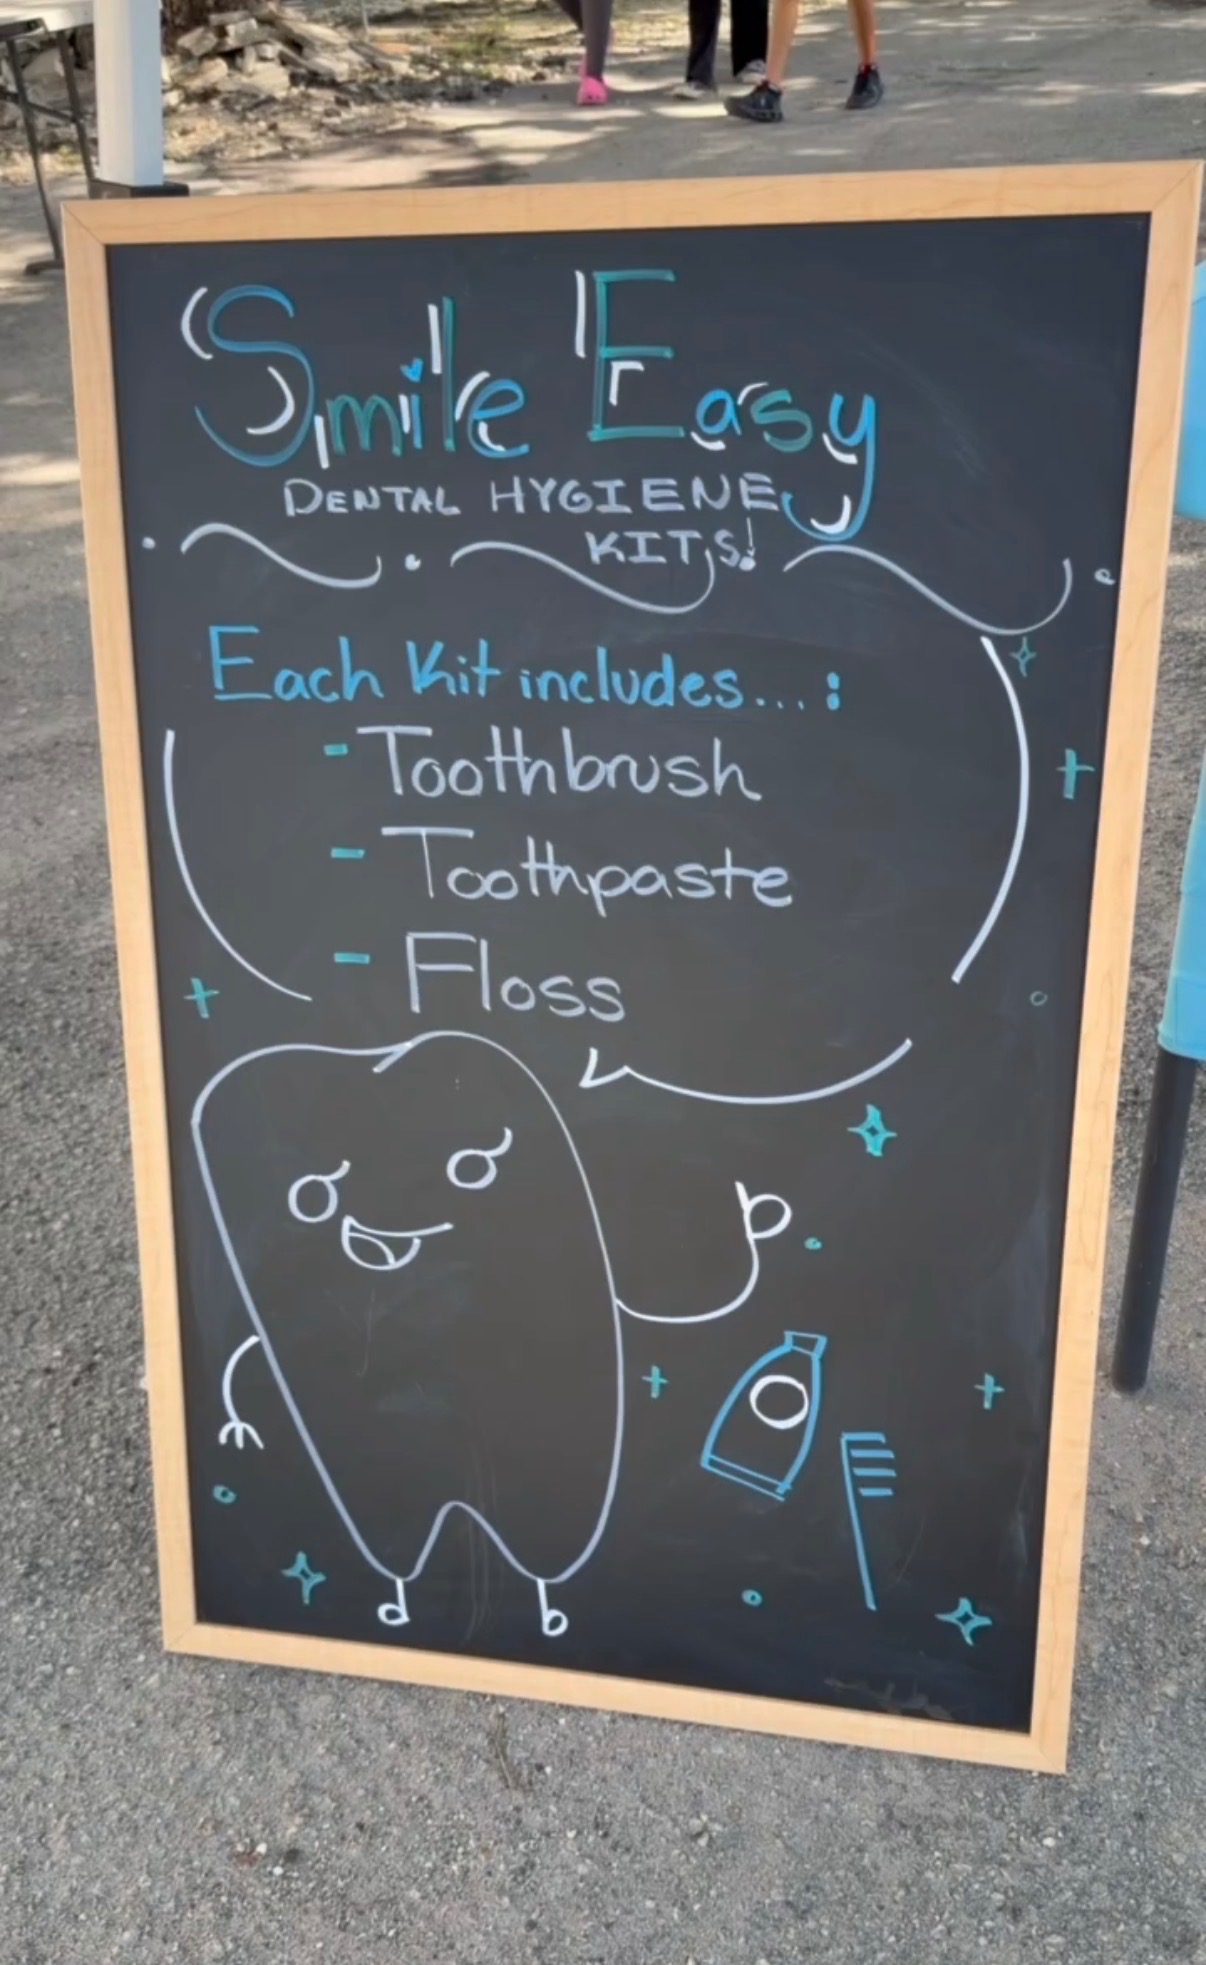 Smile Easy
DENTAL HYGIENE
KITS!
Each Kit includes...:
- Toothbrush
- Toothpaste
- Floss